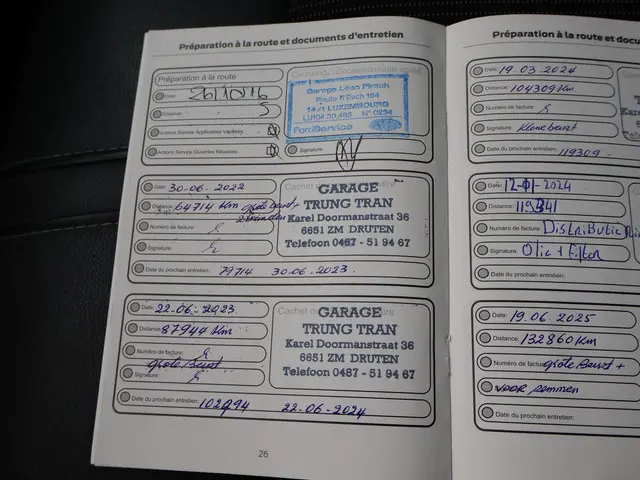 Préparation à la route et documents d'entretien
Préparation à la route
Date: 26/10/16
Distance: 5
Actions Service Applicables Vérifiées:
Actions Service Ouvertes Réussies:
Garage Léon Pirsch
Route d'Esch 164
1471 LUXEMBOURG
LU104 30.486 N° 0234
FordService
Signature:
Date: 30-06-2022
Distance: 64714 Km grote beurt +
Numéro de facture:
Signature:
Date du prochain entretien: 79714 30.06.2023.
GARAGE
TRUNG TRAN
Karel Doormanstraat 36
6651 ZM DRUTEN
Telefoon 0487 - 51 94 67
Date: 22-06-2023.
Distance: 87944 Km
Numéro de facture:
grote Beurt
Signature:
Date du prochain entretien: 102994 22-06-2024
GARAGE
TRUNG TRAN
Karel Doormanstraat 36
6651 ZM DRUTEN
Telefoon 0487 - 51 94 67
26
Préparation à la route et docu
Date: 19-03-2024
Distance: 104309 Km
Numéro de facture:
Signature: Kleine beurt
Date du prochain entretien: 119309-
Date: 12-01-2024
Distance: 119341
Numéro de facture: Distributie
Signature: Olie + Filter
Date du prochain entretien:
Date: 19.06.2025
Distance: 132860 Km
Numéro de facture: grote Beurt +
voor remmen
Date du prochain entretien: